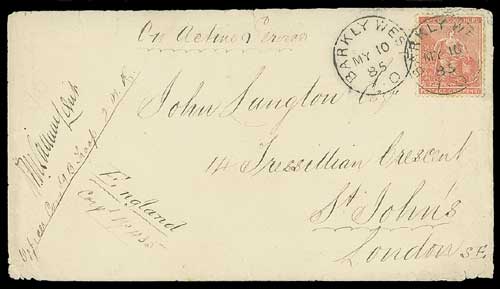 On Active Service
BARKLY WEST
MY 10
85
C
BARKLY WE
MY 10
85
John Langton Esqr
14 Tressillian Crescent
St John's
London S.E.
England
Officer Comg B Troop 2 M.R.